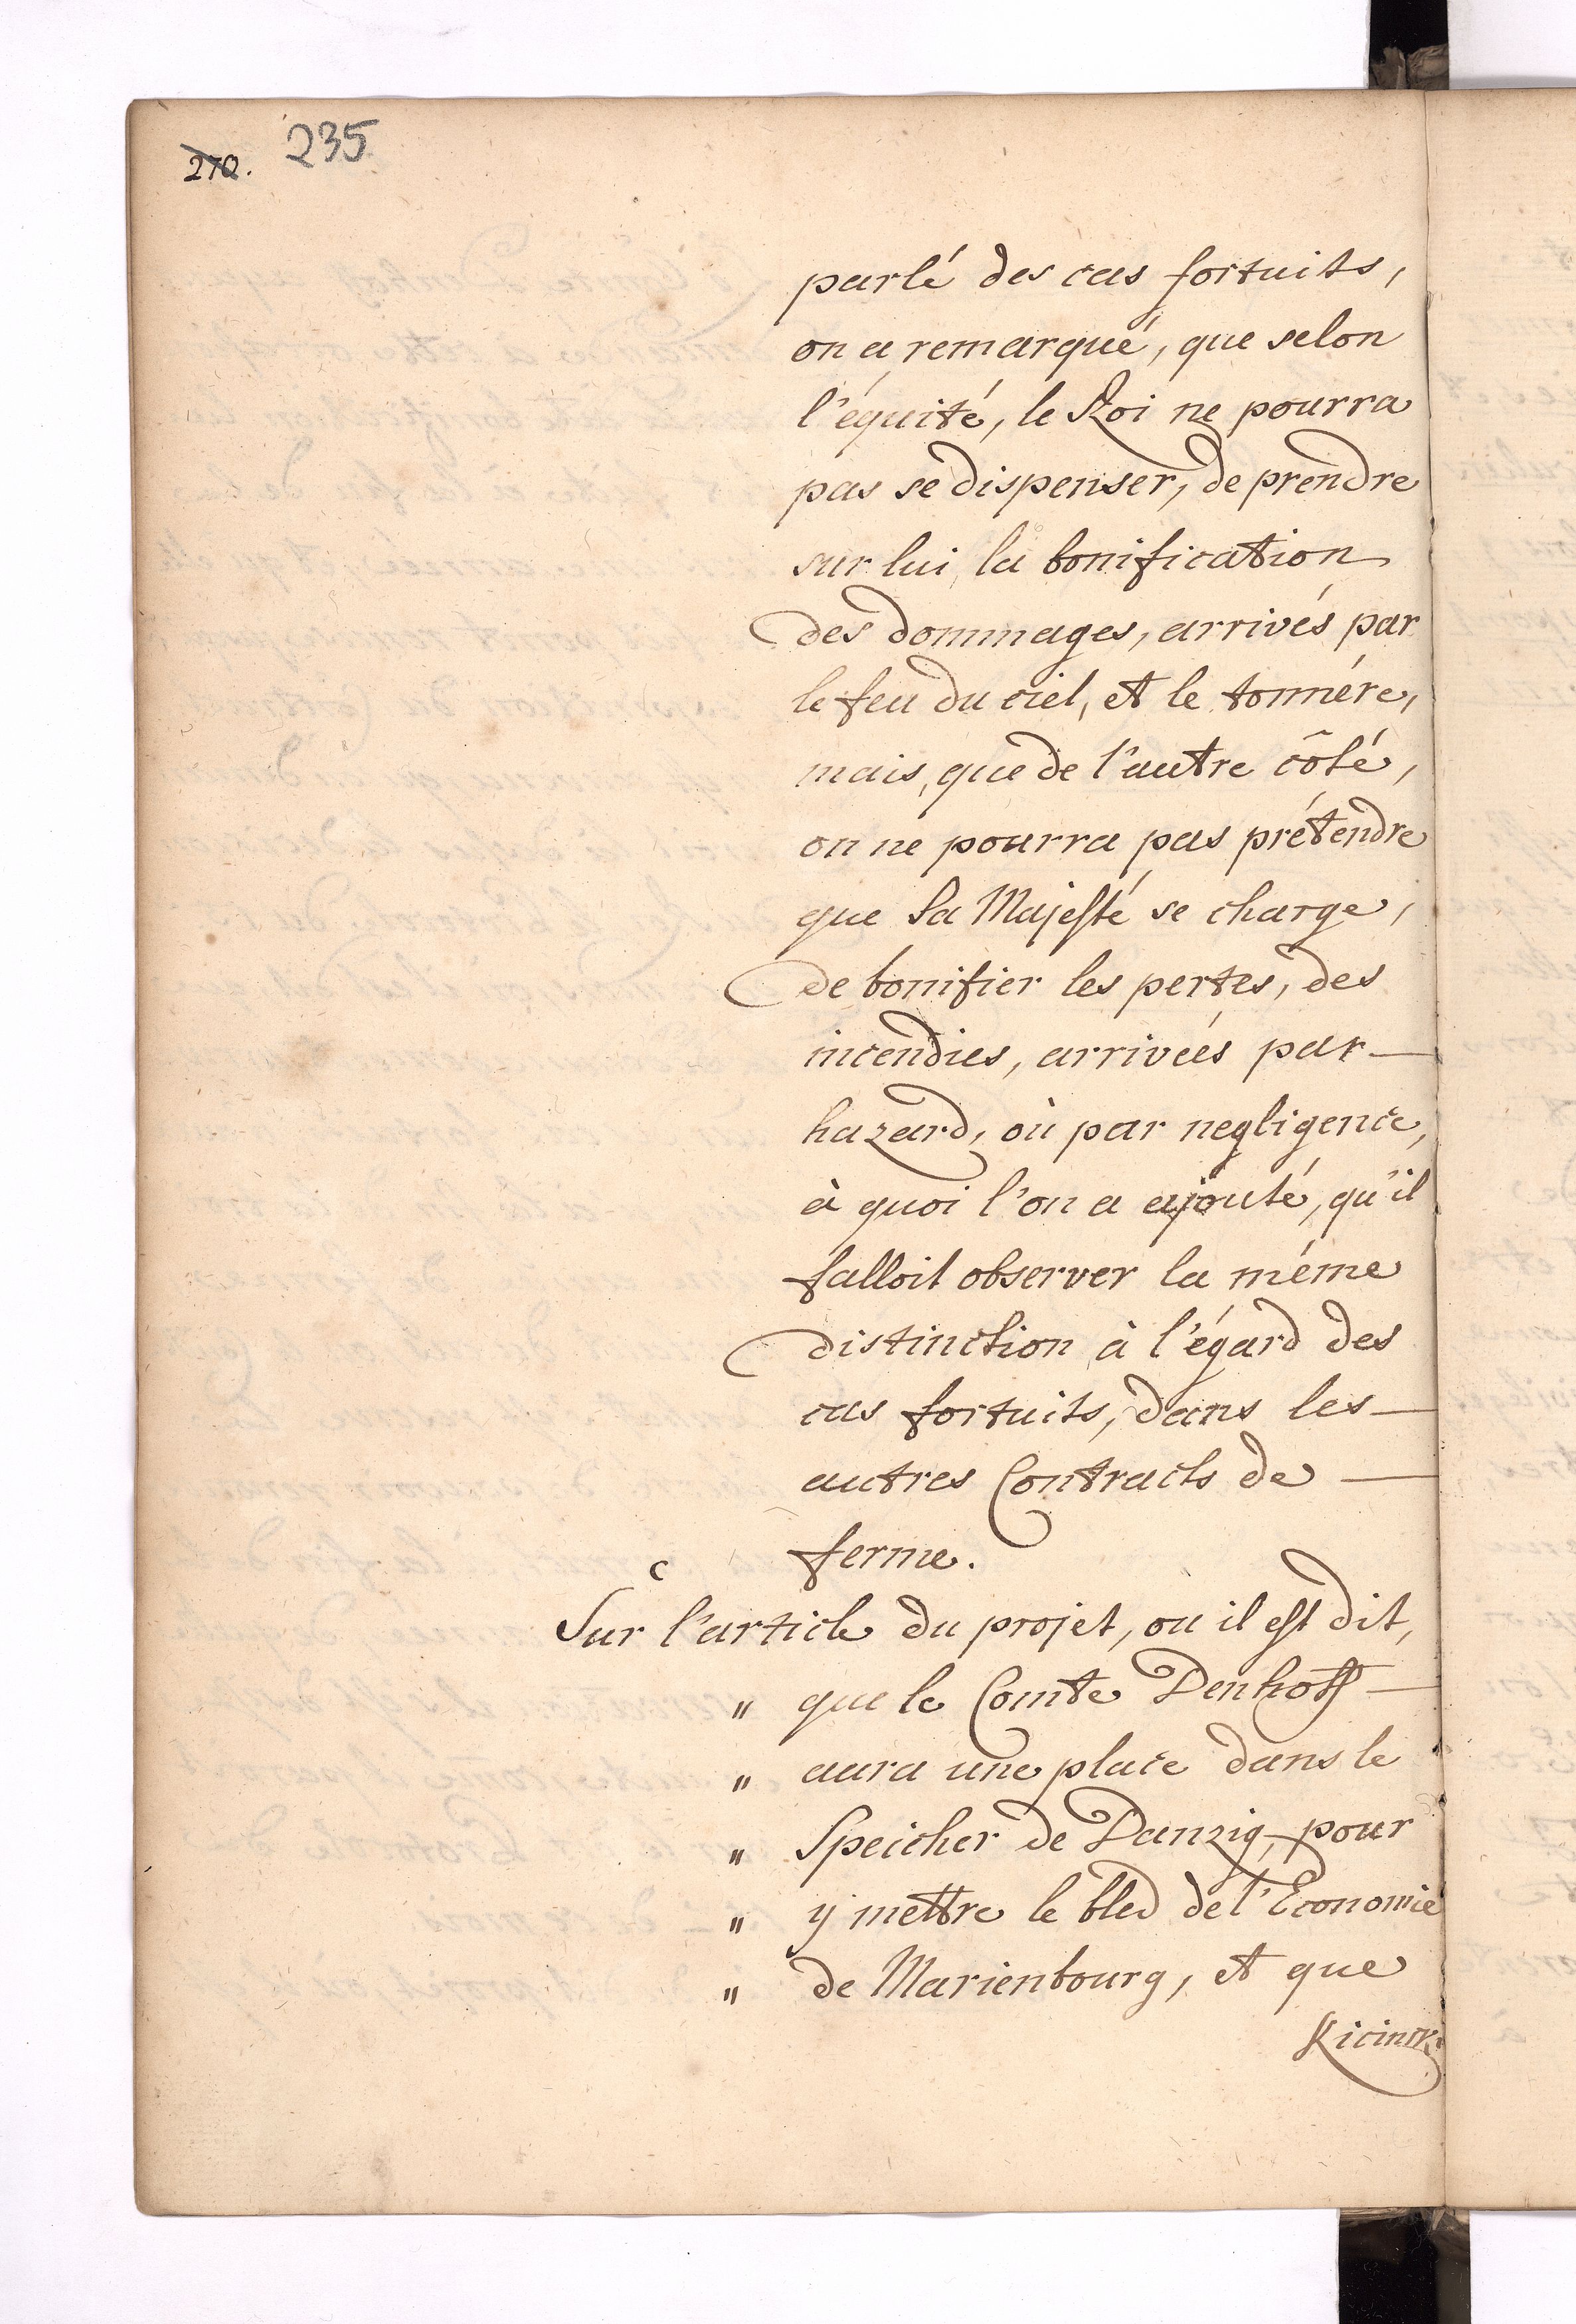 270. 235
parlé des cas fortuits,
on a remarqué, que selon
l'équité, le Roi ne pourra
pas se dispenser, de prendre
sur lui, la bonification
des dommages, arrivés par
le feu du ciel, et le tonnére,
mais, que de l'autre côté,
on ne pourra pas prétendre
que Sa Majesté se charge,
de bonifier les pertes, des
incendies, arrivées par
hazard, où par negligence,
à quoi l'on a ajouté, qu'il
falloit observer la méme
distinction à l'égard des
cas fortuits, dans les
autres Contracts de
ferme.
c
Sur l'article du projet, ou il est dit,
" que le Comte Denhoff
" aura une place dans le
" Speicher de Danzig, pour
" y mettre le bled de l'Economie
" de Marienbourg, et que
Kicinski